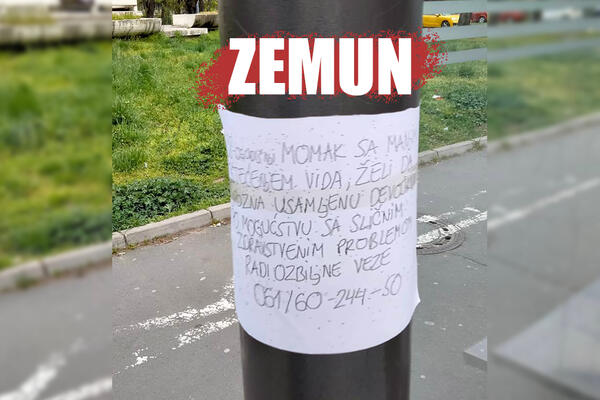 ZEMUN
MOMAK SA
VIDA, ŽELI DA
USAMLJENU
MOGUĆSTVU SA SLIČNIM
ZDRAVSTVENIM PROBLEMOM
RADI OZBILJNE VEZE
061/60-244-50